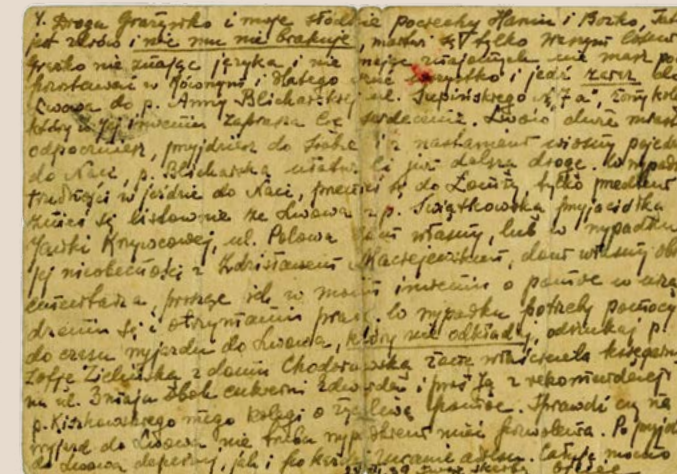 4. Droga Grażynko i moje słodkie pociechy Haniu i Bożko, Tat
jest zdrów i nic mu nie brakuje, martwi się tylko Waszym losem
Grażko nie znając języka i nie mając znajomych nie masz po
pozostawać w Równym i dlatego wszystko i jedź zaraz do
Lwowa do p. Anny Blicharskiej ul. Supińskiego 7a", żony kole
który w jej imieniu zaprasza Cię serdecznie. Lwów duże miasto
odpoczniesz, przyjdziesz do siebie i z nastaniem wiosny pojedz
do Naci, p. Blicharska ułatwi Ci już dalszą drogę. W wypadku
trudności w jeździe do Naci, przenieś się do Łomży, tylko przedtem
znieś się listownie ze Lwowa z p. Świątkowską przyjaciółką
ul. Polowa dom własny, lub w wypadku
jej nieobecności z Zdzisławem Maciejczykiem, dom własny ob
cmentarza, prosząc ich w moim imieniu o pomoc w urzą
dzeniu się i otrzymaniu pracy. W wypadku potrzeby pomocy
do czasu wyjazdu do Lwowa, który nie odkładaj, odszukaj p.
Zofję Zielińską z domu Chodorowska żonę właściciela księgarni
na ul. 3 maja obok cukierni Edwarda i proś Ją z rekomendacji
p. Kiszkowskiego mego kolegi o życzliwą pomoc. Sprawdź czy na
wyjazd do Lwowa nie trzeba mieć pozwolenia. Po przyjeź
do Lwowa depeszuj, jak i po każdej zmianie adresu. Całuję mocno